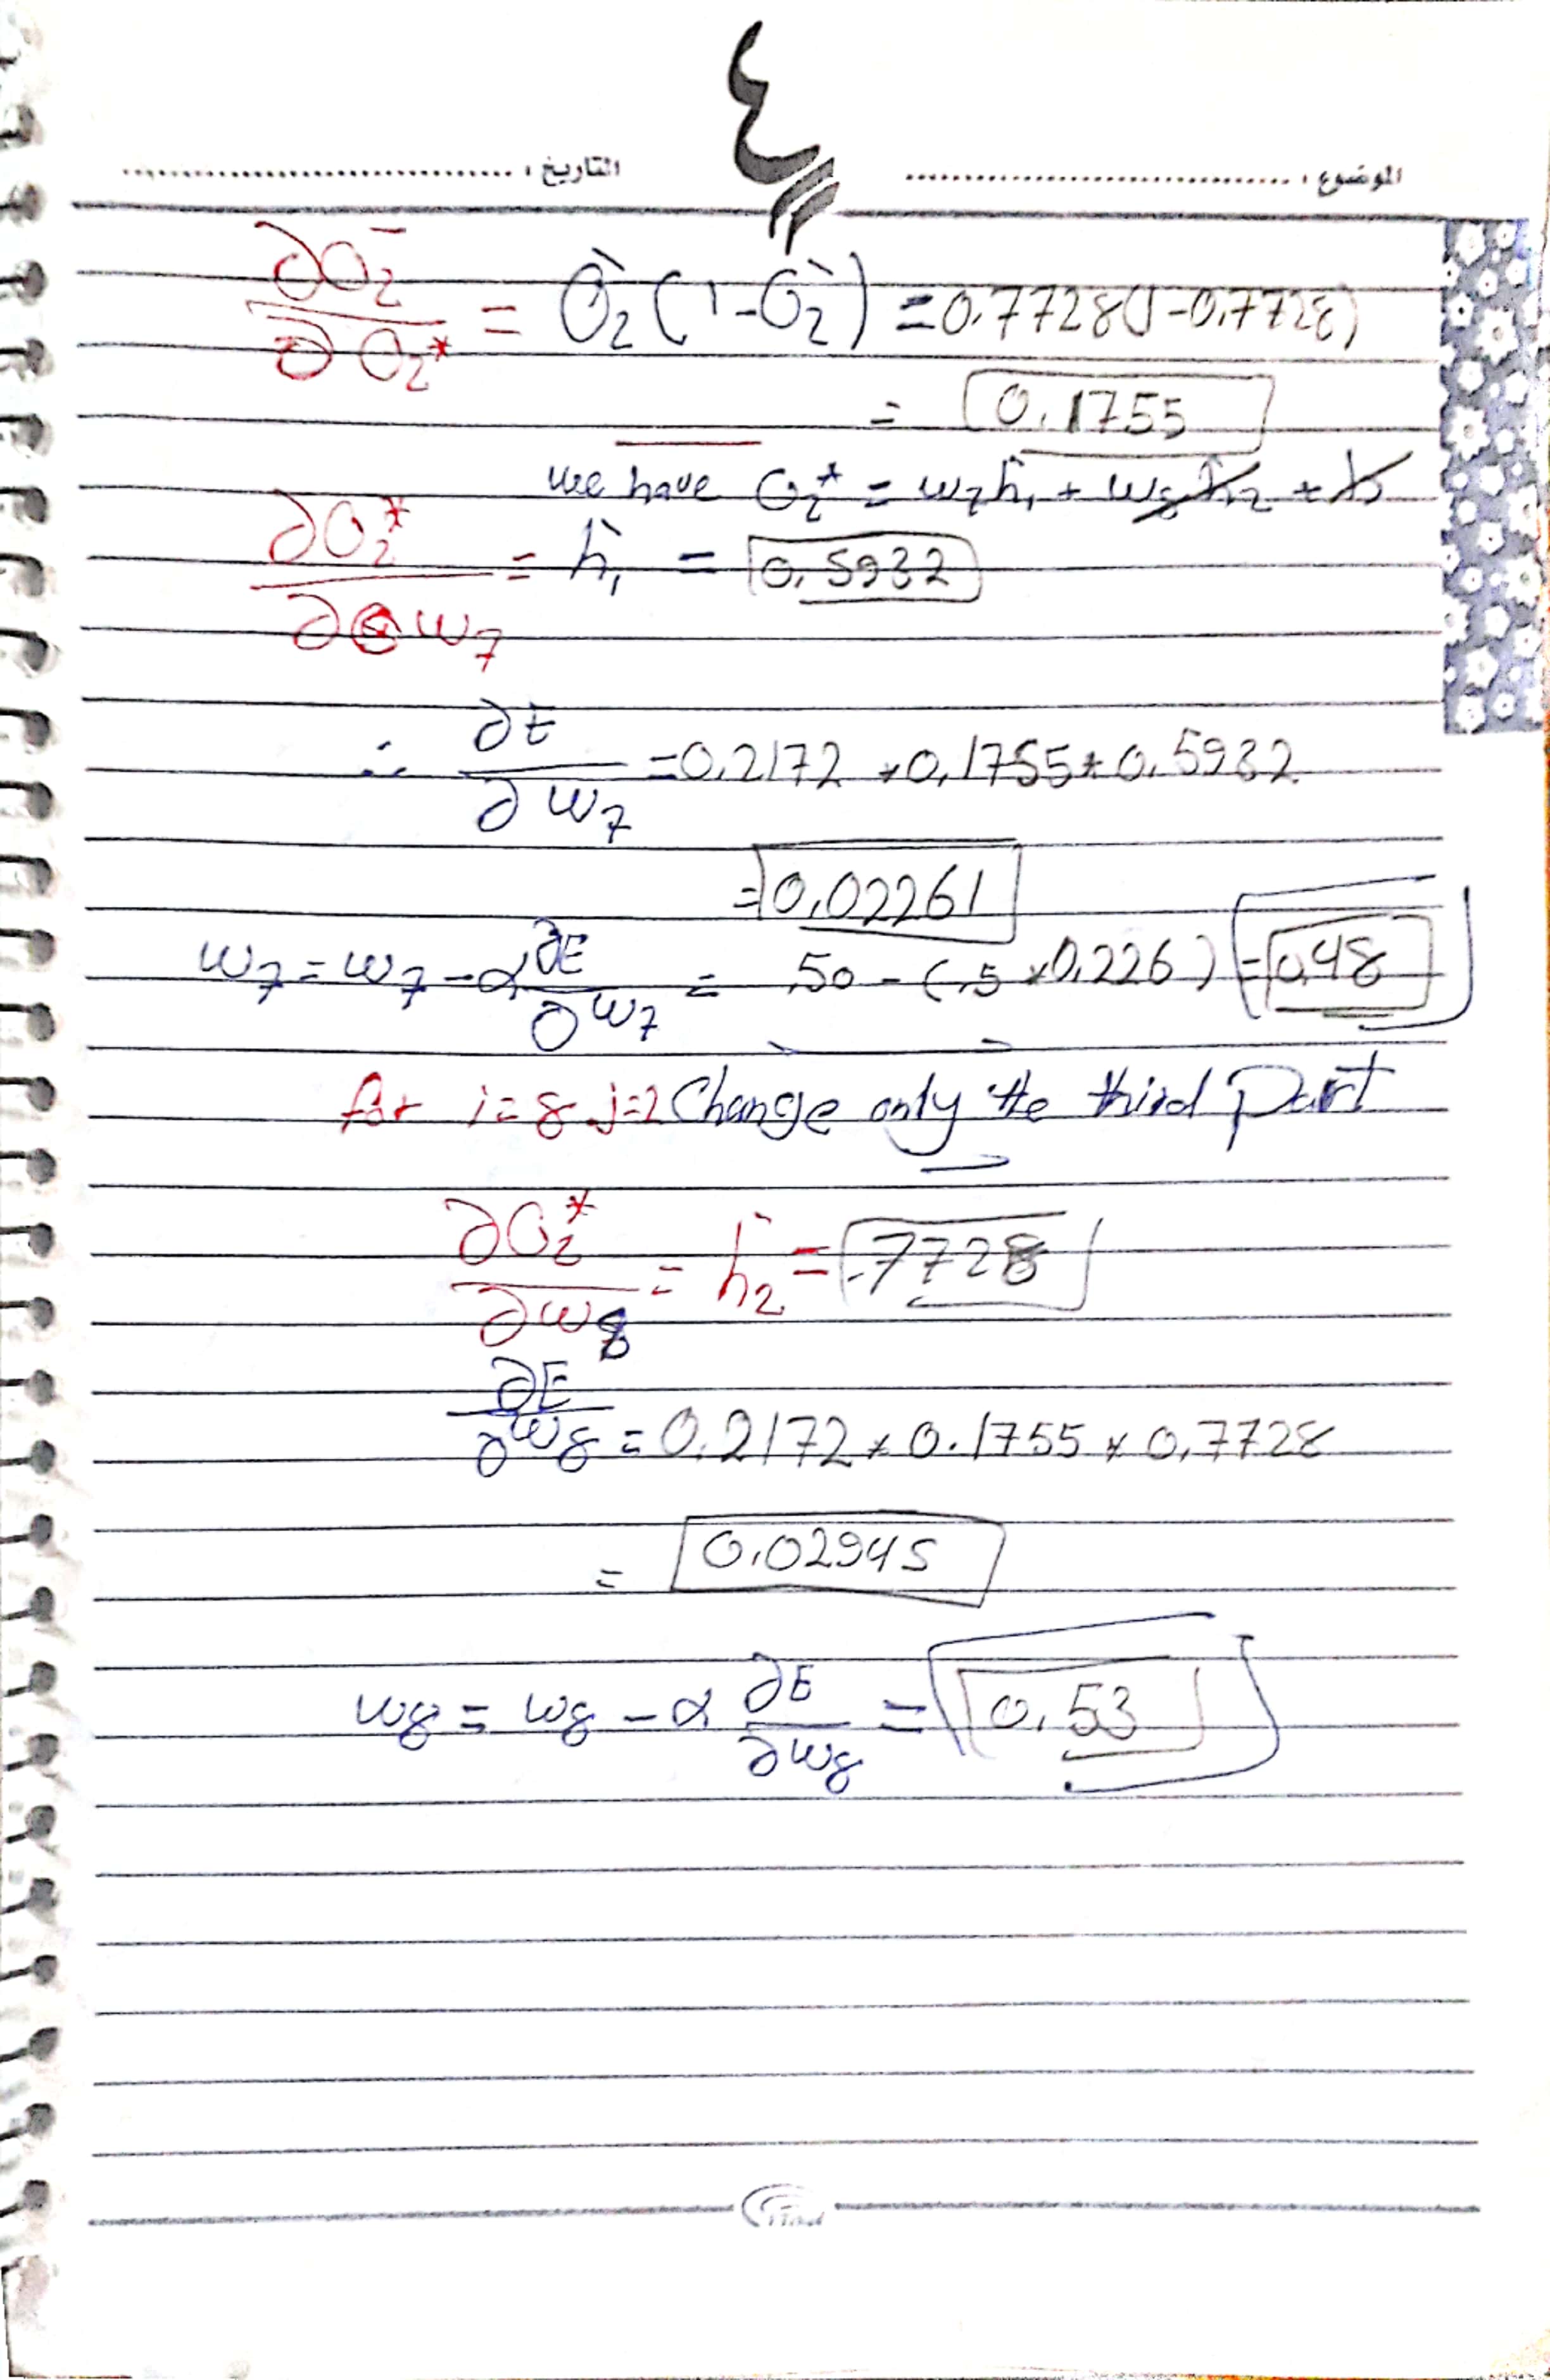 ٤
الموضوع : ........................ التاريخ : ........................
∂O₂̀ / ∂O₂* = Ò₂ (1-Ò₂) = 0.7728(1-0.7728)
= 0.1755
we have O₂* = w₇h̀₁ + w₈h̀₂ + b
∂O₂* / ∂w₇ = h̀₁ = 0.5932
∴ ∂E / ∂w₇ = 0.2172 * 0.1755 * 0.5932
= 0.02261
w₇ = w₇ - α ∂E / ∂w₇ = .50 - (.5 * 0.226) = 0.48
for i=8 j=2 Change only the third Part
∂O₂* / ∂w₈ = h̀₂ = .7728
∂E / ∂w₈ = 0.2172 * 0.1755 * 0.7728
= 0.02945
w₈ = w₈ - α ∂E / ∂w₈ = 0.53